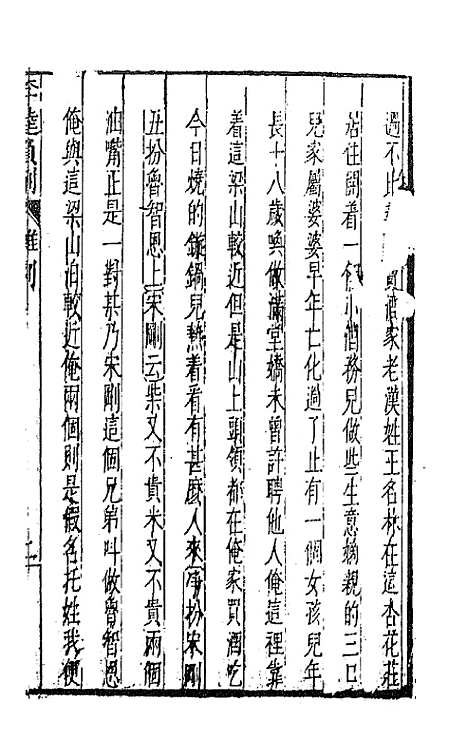 過不
買酒家老漢姓王名林在這杏花莊
居住開着一个小酒務兒做些生意嫡親的三口
兒家屬婆婆早年亡化過了止有一個女孩兒年
長十八歲喚做滿堂嬌未曾許聘他人俺這裡靠
着這梁山較近但是山上頭領都在俺家買酒吃
今日燒的鏇鍋兒熱着看有甚麽人來淨扮宋剛
丑扮魯智恩上宋剛云柴又不貴米又不貴兩個
油嘴正是一對某乃宋剛這個兄弟叫做魯智恩
俺與這梁山泊較近俺兩個則是假名托姓我便
李逵負荊 雜劇